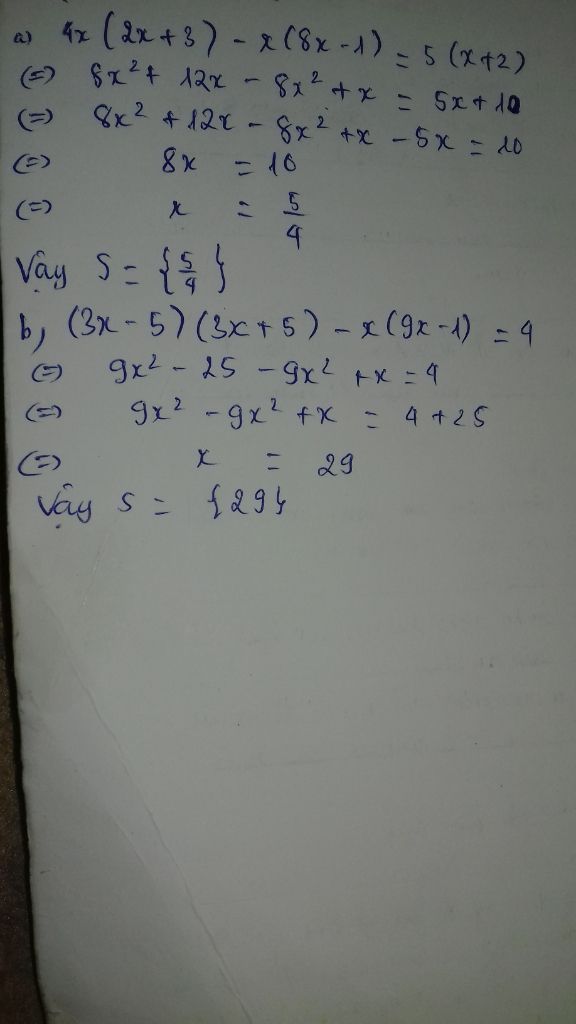 a) 4x (2x+3) - x(8x-1) = 5(x+2)
(=) 8x² + 12x - 8x² + x = 5x+10
(=) 8x² + 12x - 8x² + x - 5x = 10
(=) 8x = 10
(=) x = 5/4
Vậy S = {5/4}
b, (3x-5)(3x+5) - x(9x-1) = 4
(=) 9x² - 25 - 9x² + x = 4
(=) 9x² - 9x² + x = 4+25
(=) x = 29
Vậy S = {29}